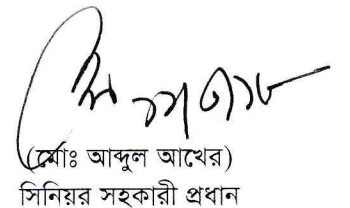 (মোঃ আব্দুল আখের)
সিনিয়র সহকারী প্রধান